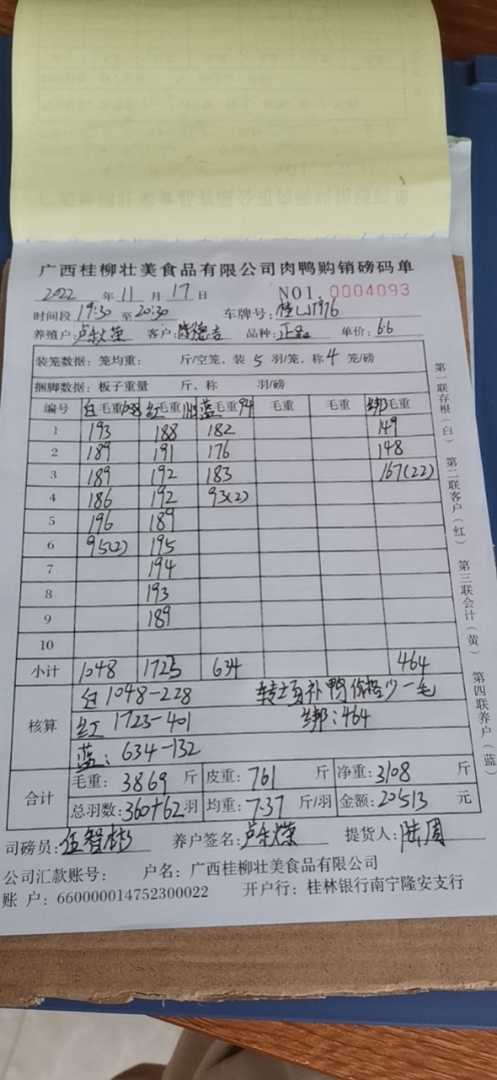 广西桂柳壮美食品有限公司肉鸭购销磅码单
2022 年 11 月 17 日 NO1 0004093
时间段 19:30 至 20:30 车牌号:
养殖户: 客户: 品种: 单价: 6.6
装笼数据: 笼均重: 斤/空笼, 装 5 羽/笼, 称 4 笼/磅
捆脚数据: 板子重量 斤, 称 羽/磅
编号 白 毛重 红 毛重 蓝 毛重 94 毛重 毛重 绑 毛重
1 193 188 182 149
2 189 191 176 148
3 189 192 183 167(22)
4 186 192 93(2)
5 196 189
6 95(2) 195
7 194
8 193
9 189
10
小计 1048 1723 634 464
核算 白 1048-228 转场补鸭价格少一毛
红 1723-401 绑:464
蓝:634-132
合计 毛重: 3869 斤 皮重: 761 斤 净重: 3108 斤
总羽数: 360+62 羽 均重: 7.37 斤/羽 金额: 20513 元
司磅员: 伍智彬 养户签名: 提货人: 陆周
公司汇款账号: 户名:广西桂柳壮美食品有限公司
账 户:660000014752300022 开户行:桂林银行南宁隆安支行
第一联存根(白) 第二联客户(红) 第三联会计(黄) 第四联养户(蓝)